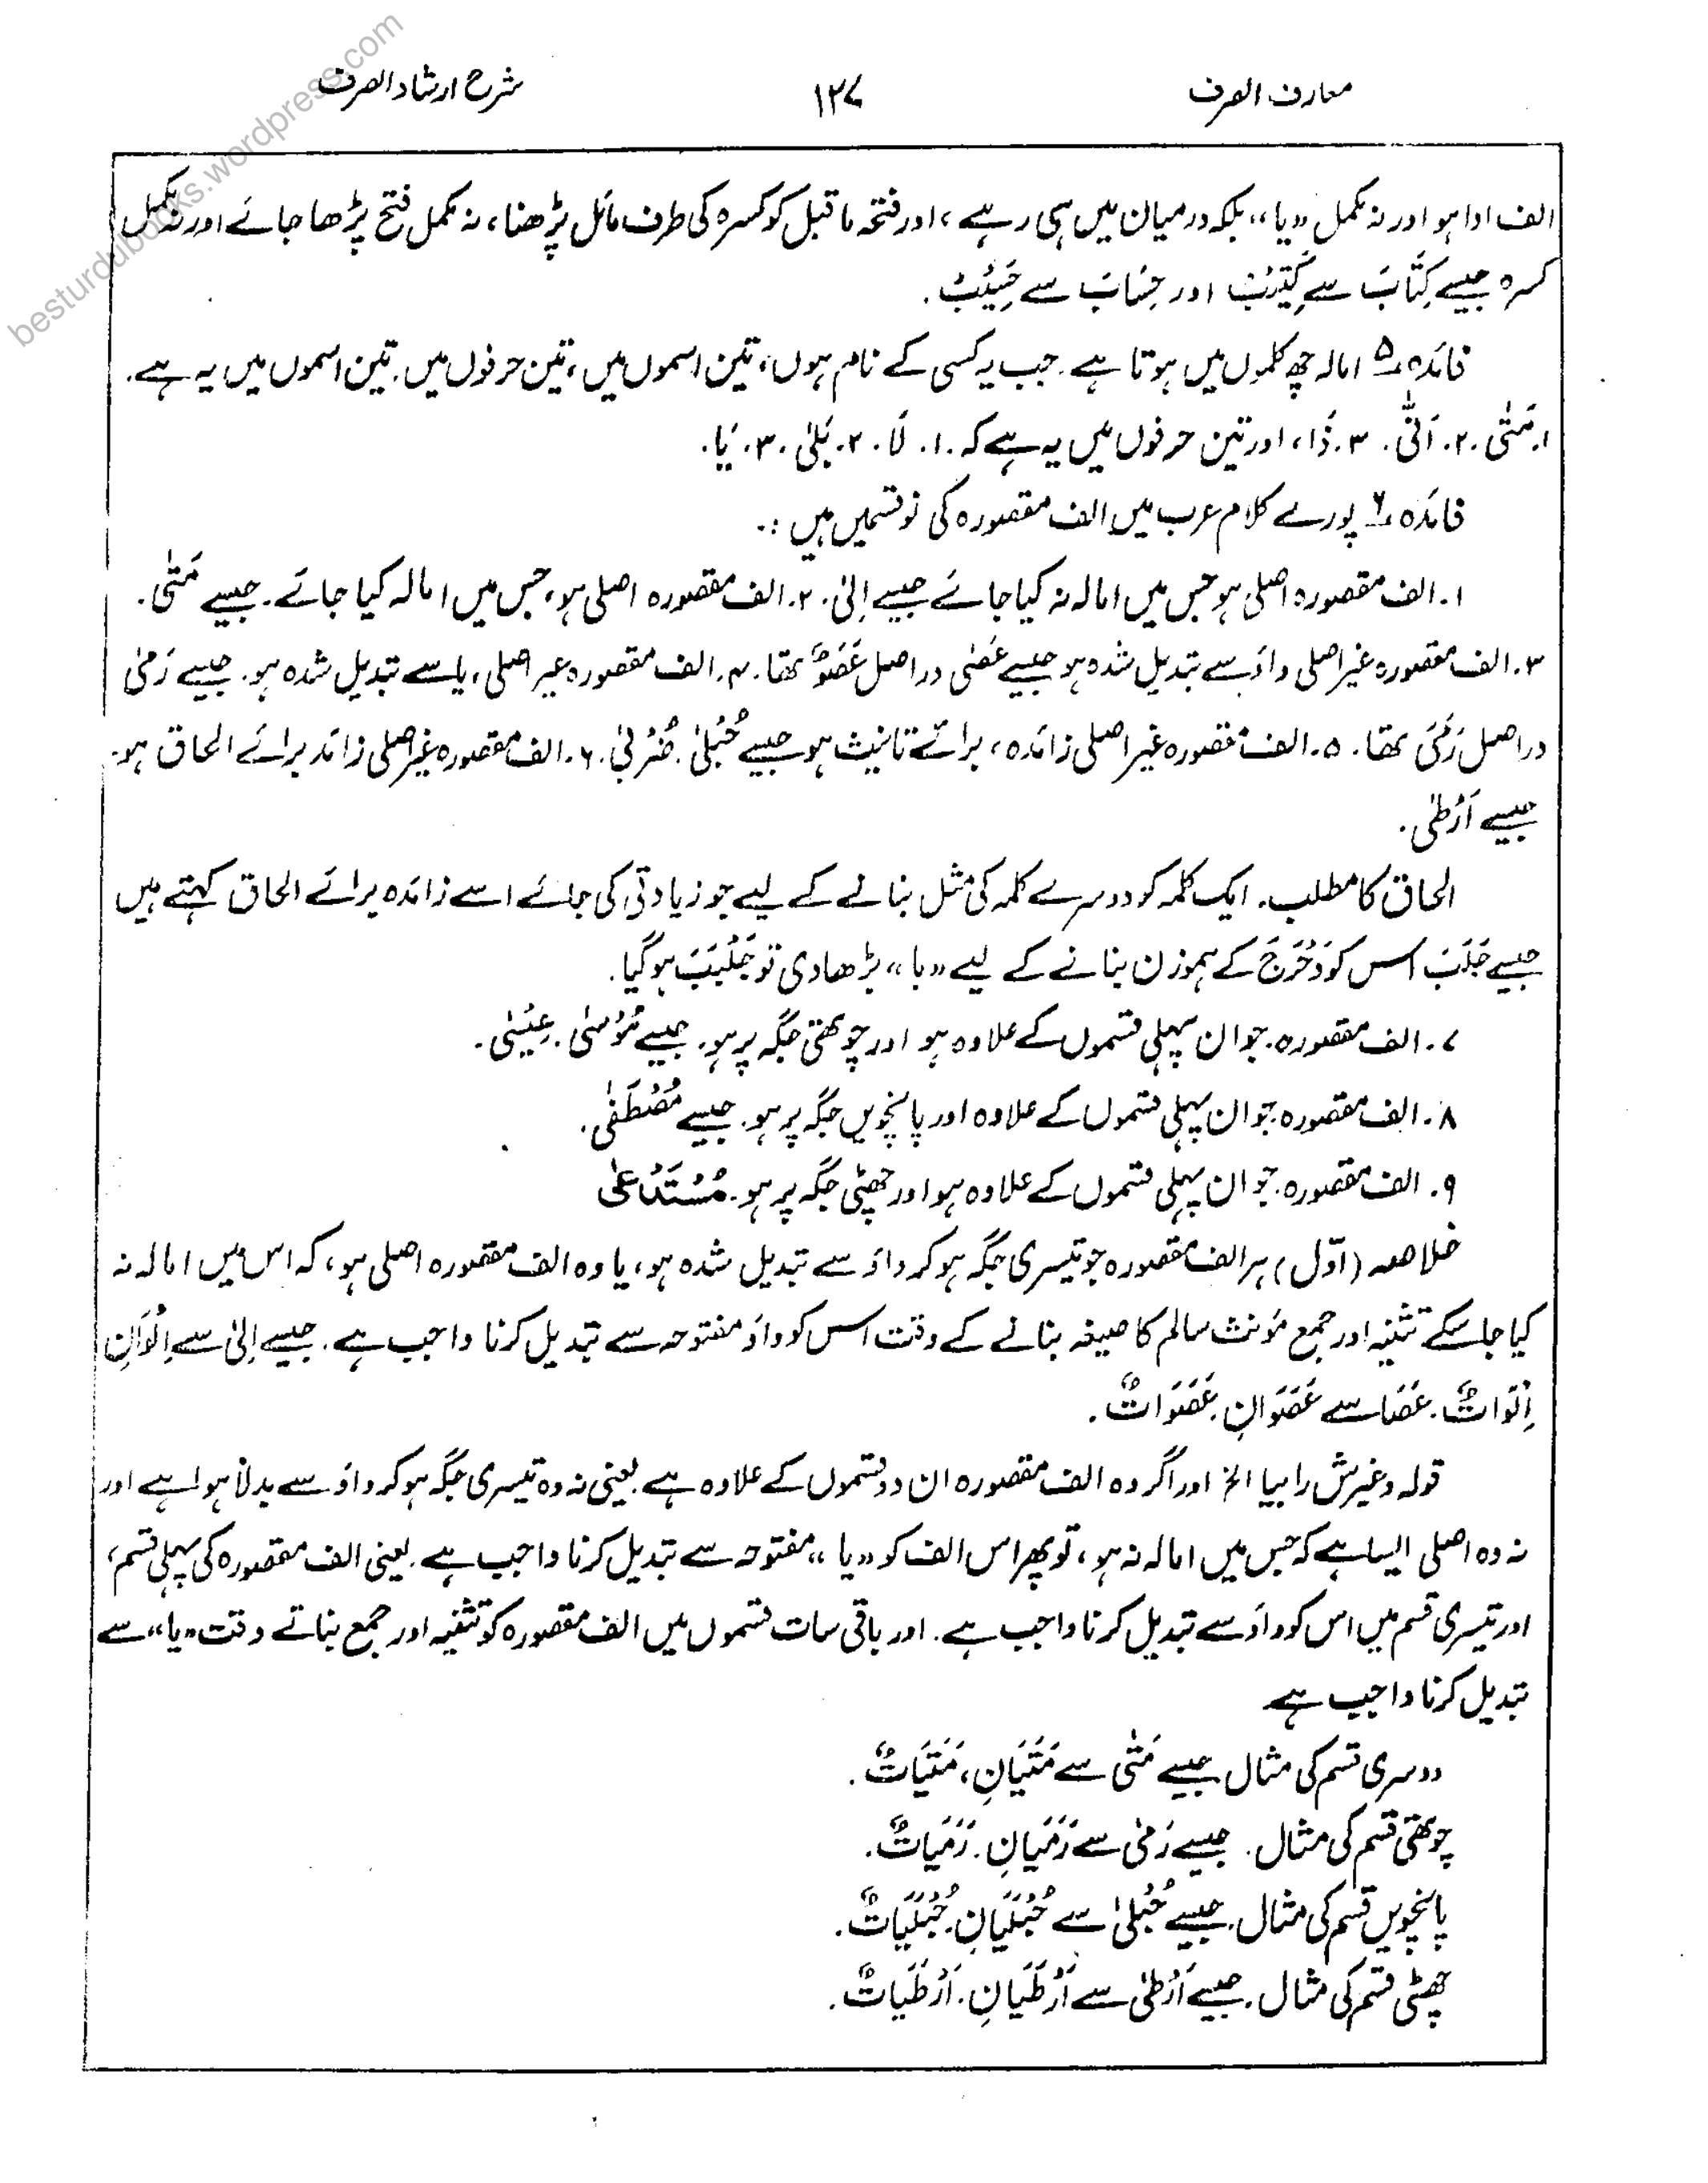 معارف الصرف ۱۲۷ شرح ارشاد الصرف
besturdubooks.wordpress.com
الف ادا ہو اور نہ مکمل «یا»، بلکہ درمیان میں ہی رہے، اور فتحہ ماقبل کو کسرہ کی طرف مائل پڑھنا، نہ مکمل فتح پڑھا جائے اور نہ مکمل
کسرہ جیسے کِتَابَ سے اور حِسَابَ سے
فائدہ ۵ امالہ چھ کلموں میں ہوتا ہے۔ جب یہ کسی کے نام ہوں، تین اسموں میں، تین حرفوں میں۔ تین اسموں میں یہ ہے۔
۱۔ مَتٰی ۔۲۔ اَنّٰی ۔ ۳۔ ذَا، اور تین حرفوں میں یہ ہے کہ ۔۱۔ لَا ۔ ۲۔ بَلٰی ۔۳۔ یَا۔
فائدہ ۶ پورے کلام عرب میں الف مقصورہ کی نو قسمیں ہیں :۔
۱۔ الف مقصورہ اصلی ہو جس میں امالہ نہ کیا جائے جیسے اِلیٰ۔ ۲۔ الف مقصورہ اصلی ہو، جس میں امالہ کیا جائے۔ جیسے مَتٰی۔
۳۔ الف مقصورہ غیر اصلی واؤ سے تبدیل شدہ ہو جیسے عَصٰی دراصل عَصَوٌ تھا۔ ۴۔ الف مقصورہ غیر اصلی، یا سے تبدیل شدہ ہو۔ جیسے رَمیٰ
دراصل رَمَیَ تھا۔ ۵۔ الف مقصورہ غیر اصلی زائدہ، برائے تانیث ہو جیسے حُبْلیٰ۔ ضُرْبیٰ۔ ۶۔ الف مقصورہ غیر اصلی زائد برائے الحاق ہو۔
جیسے اَرْطیٰ۔
الحاق کا مطلب۔ ایک کلمہ کو دوسرے کلمہ کی مثل بنانے کے لیے جو زیادتی کی جائے اسے زائدہ برائے الحاق کہتے ہیں
جیسے جَلَبَ اس کو دَحْرَجَ کے ہموزن بنانے کے لیے «با» بڑھادی تو جَلْبَبَ ہو گیا۔
۷۔ الف مقصورہ۔ جو ان پہلی قسموں کے علاوہ ہو اور چوتھی جگہ پر ہو۔ جیسے مُوْسیٰ۔ عِیْسیٰ۔
۸۔ الف مقصورہ جو ان پہلی قسموں کے علاوہ اور پانچویں جگہ پر ہو۔ جیسے مُصْطَفٰی۔
۹۔ الف مقصورہ۔ جو ان پہلی قسموں کے علاوہ ہو اور چھٹی جگہ پر ہو۔ مُسْتَدْعیٰ
خلاصہ (اوّل) ہر الف مقصورہ جو تیسری جگہ ہو کر واؤ سے تبدیل شدہ ہو، یا وہ الف مقصورہ اصلی ہو، کہ اس میں امالہ نہ
کیا جا سکے تثنیہ اور جمع مؤنث سالم کا صیغہ بنانے کے وقت اس کو واؤ مفتوحہ سے تبدیل کرنا واجب ہے۔ جیسے اِلیٰ سے اِلَوَانِ
اِلَوَاتٌ۔ عَصَا سے عَصَوَانِ۔ عَصَوَاتٌ۔
قولہ وغیرش را بیا الخ اور اگر وہ الف مقصورہ ان دو قسموں کے علاوہ ہے۔ یعنی نہ وہ تیسری جگہ ہو کر واؤ سے بدلا ہوا ہے اور
نہ وہ اصلی ایسا ہے کہ جس میں امالہ نہ ہو، تو پھر اس الف کو «یا» مفتوحہ سے تبدیل کرنا واجب ہے۔ یعنی الف مقصورہ کی پہلی قسم،
اور تیسری قسم میں اس کو واؤ سے تبدیل کرنا واجب ہے۔ اور باقی سات قسموں میں الف مقصورہ کو تثنیہ اور جمع بناتے وقت «یا» سے
تبدیل کرنا واجب ہے
دوسری قسم کی مثال جیسے مَتٰی سے مَتَیَانِ، مَتَیَاتٌ۔
چوتھی قسم کی مثال۔ جیسے رَمیٰ سے رَمَیَانِ۔ رَمَیَاتٌ۔
پانچویں قسم کی مثال۔ جیسے حُبْلیٰ سے حُبْلَیَانِ۔ حُبْلَیَاتٌ۔
چھٹی قسم کی مثال۔ جیسے اَرْطیٰ سے اَرْطَیَانِ۔ اَرْطَیَاتٌ۔